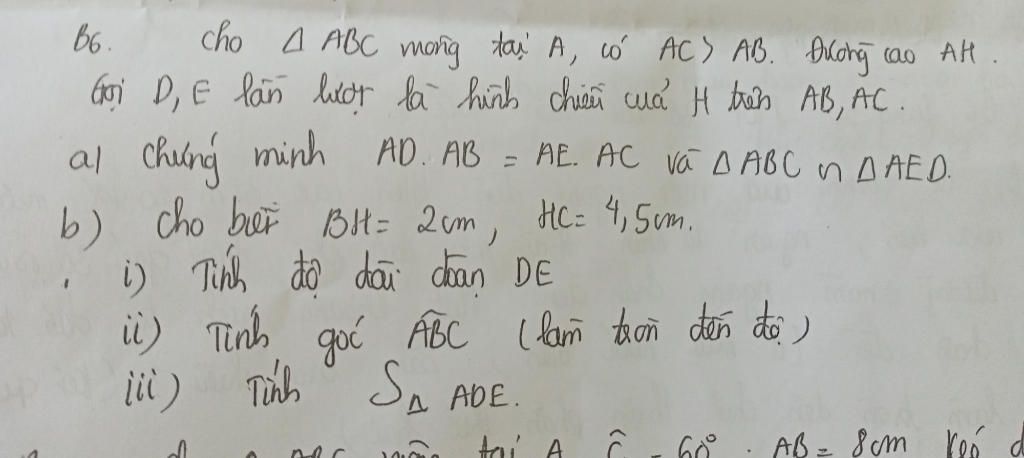 B6. Cho Δ ABC vuông tại A, có AC > AB. Đường cao AH.
Gọi D, E lần lượt là hình chiếu của H trên AB, AC.
a) Chứng minh AD. AB = AE. AC và Δ ABC ∽ Δ AED.
b) Cho biết BH = 2cm, HC = 4,5cm.
i) Tính độ dài đoạn DE
ii) Tính góc ABC (làm tròn đến độ)
iii) Tính SΔ ADE.
tại A AB = 8cm